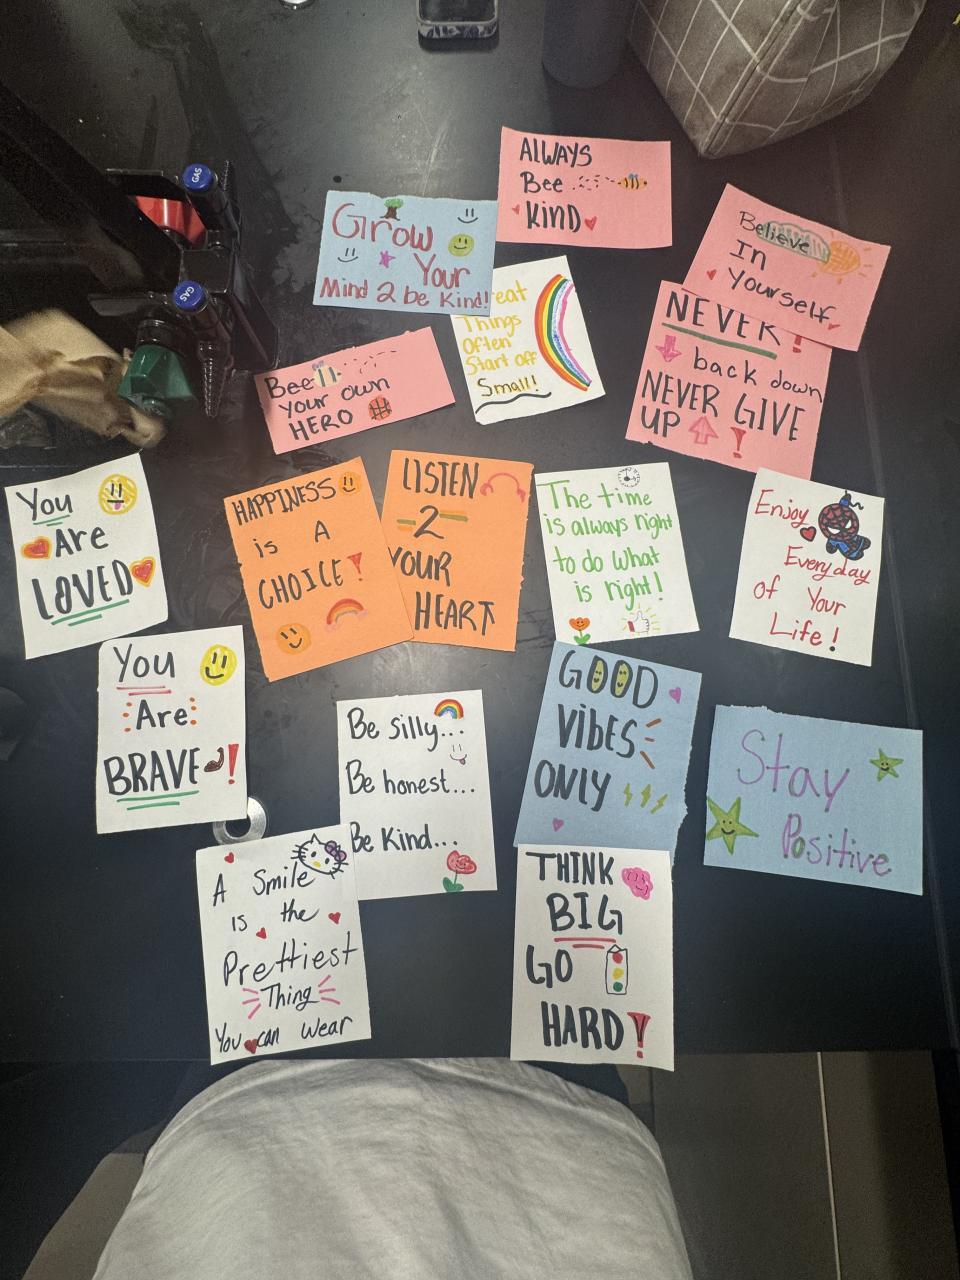 ALWAYS
Bee
KIND
Grow
Your
Mind 2 be Kind!
Believe
In
Yourself
eat
Things
Often
Start off
Small!
NEVER!
back down
NEVER GIVE
UP !
Bee
your own
HERO
GAS
GAS
You
Are
LOVED
HAPPINESS
is A
CHOICE!
LISTEN
-2-
YOUR
HEART
The time
is always right
to do what
is right!
Enjoy
Everyday
Of Your
Life!
You
Are
BRAVE!
Be silly...
Be honest...
Be Kind...
GOOD
VIBES
ONLY
Stay
Positive
A Smile
is the
Prettiest
Thing
You can wear
THINK
BIG
GO
HARD!